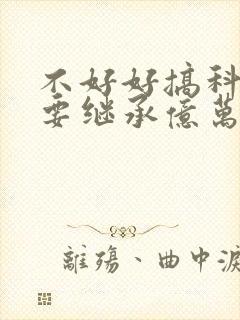 不好好搞科
要继承億萬
離殤、曲中淚